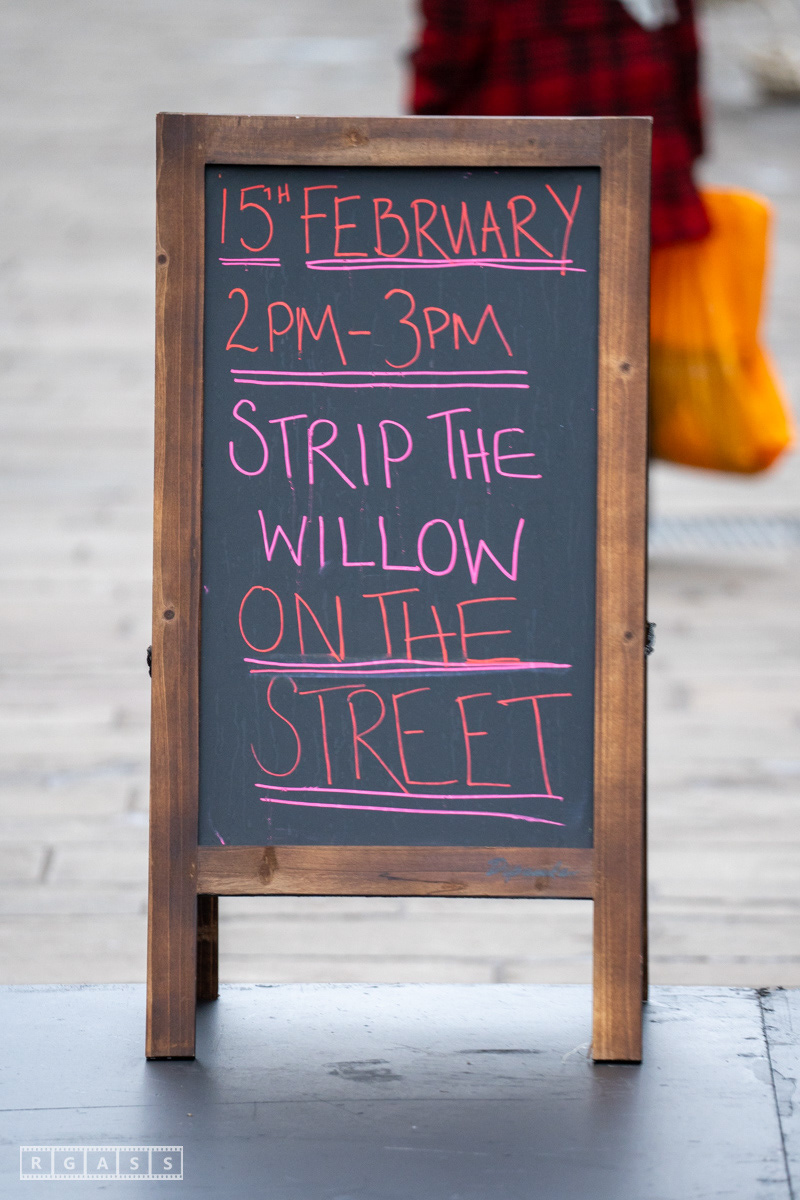 15TH FEBRUARY
2PM - 3PM
STRIP THE
WILLOW
ON THE
STREET
RGASS